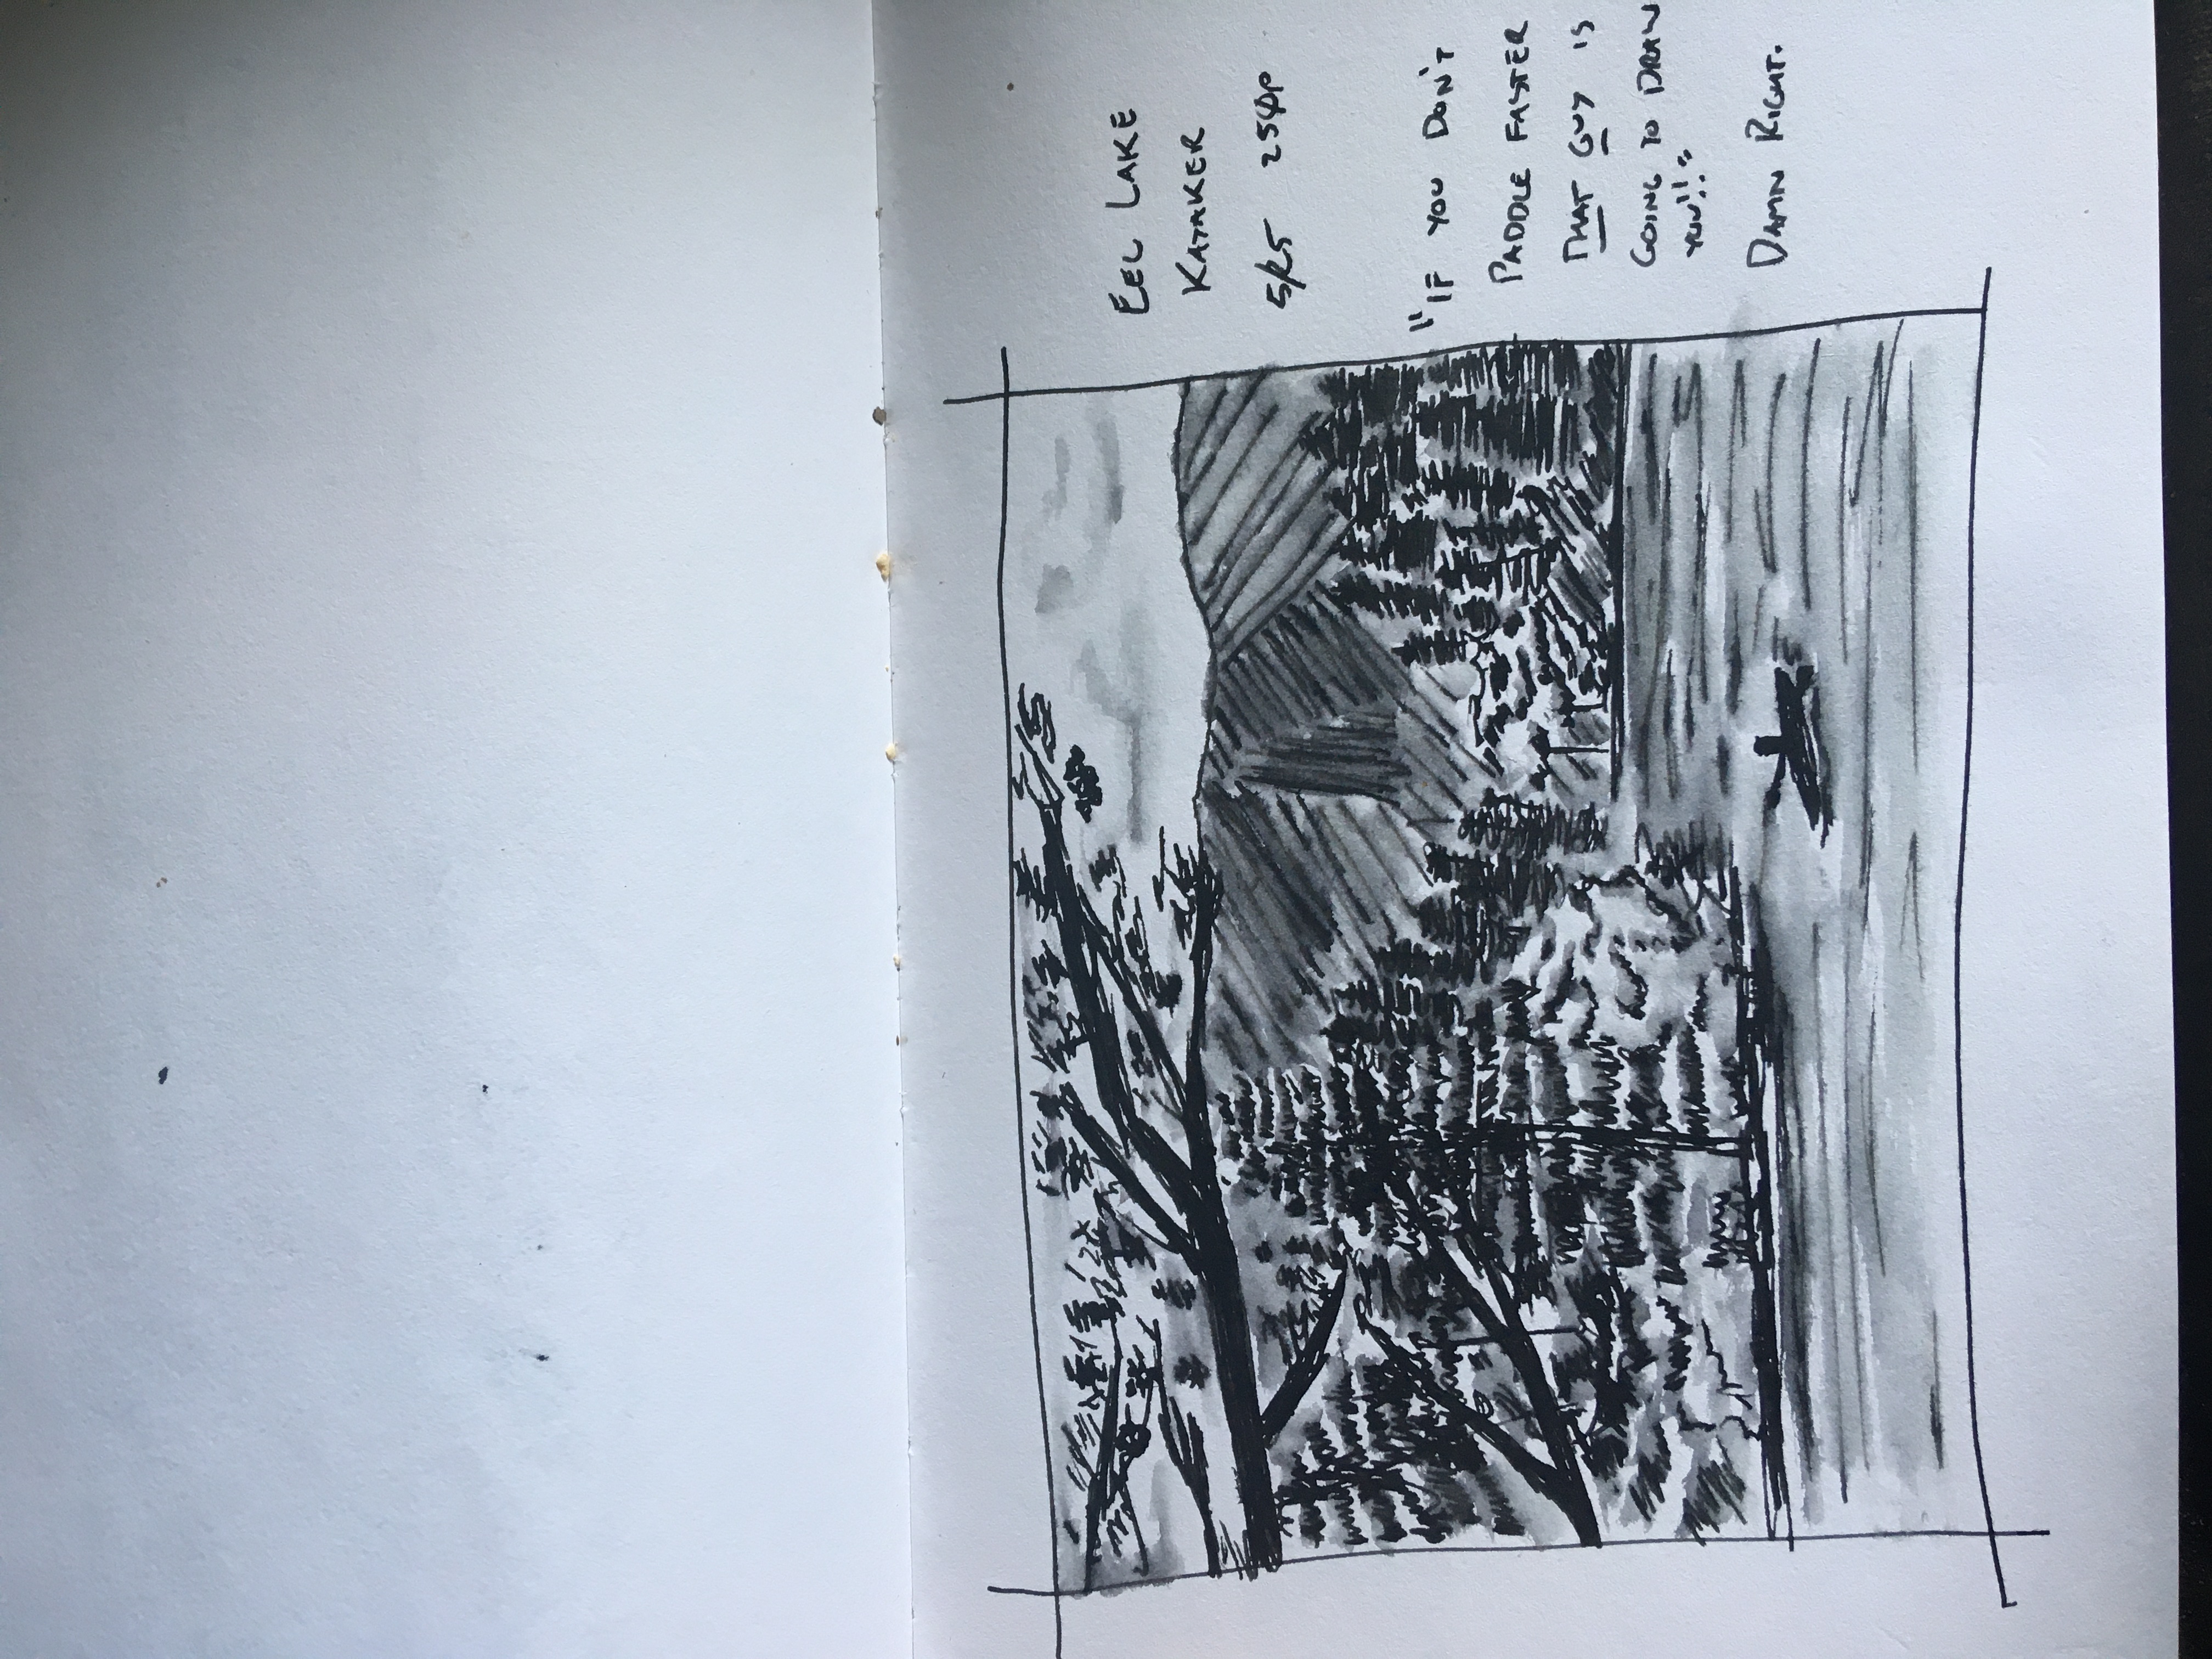 EEL LAKE
KAYAKER
5/25 250p
"IF YOU DON'T
PADDLE FASTER
THAT GUY IS
GOING TO DRAW
YOU!!"
DAMN RIGHT.